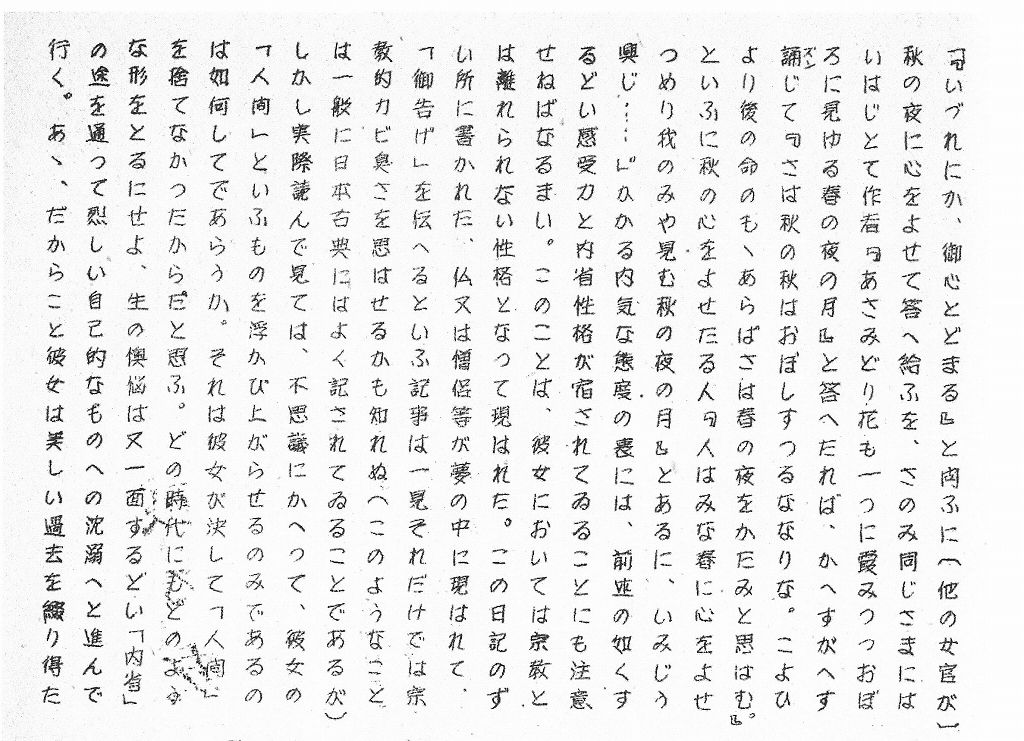 『いづれにか、御心とどまる』と問ふに(他の女官が)
秋の夜に心をよせて答へ給ふを、さのみ同じさまには
いはじとて作者『あさみどり花も一つに霞みつつおぼ
ろに見ゆる春の夜の月』と答へたれば、かへすがへす
誦じて『さは秋の秋はおぼしすつるななりな。こよひ
より後の命のもゝあらばさは春の夜をかたみと思はむ』。
といふに秋の心をよせたる人『人はみな春に心をよせ
つめり我のみや見む秋の夜の月』とあるに、いみじう
興じ……』かかる内気な態度の裏には、前述の如くす
るどい感受力と内省性格が宿されてゐることにも注意
せねばなるまい。このことは、彼女においては宗教と
は離れられない性格となって現はれた。この日記のず
い所に書かれた、仏又は僧侶等が夢の中に現はれて、
「御告げ」を伝へるといふ記事は一見それだけでは宗
教的カビ臭さを思はせるかも知れぬへこのようなこと
は一般に日本古典にはよく記されてゐることであるが)
しかし実際読んで見ては、不思議にかへつて、彼女の
「人間」といふものを浮かび上がらせるのみであるの
は如何してであらうか。それは彼女が決して「人間」
を捨てなかつたからだと思ふ。どの時代にもどのよう
な形をとるにせよ、生の懊悩は又一面するどい「内省」
の途を通って烈しい自己的なものへの沈溺へと進んで
行く。あゝ、だからこと彼女は美しい過去を綴り得た